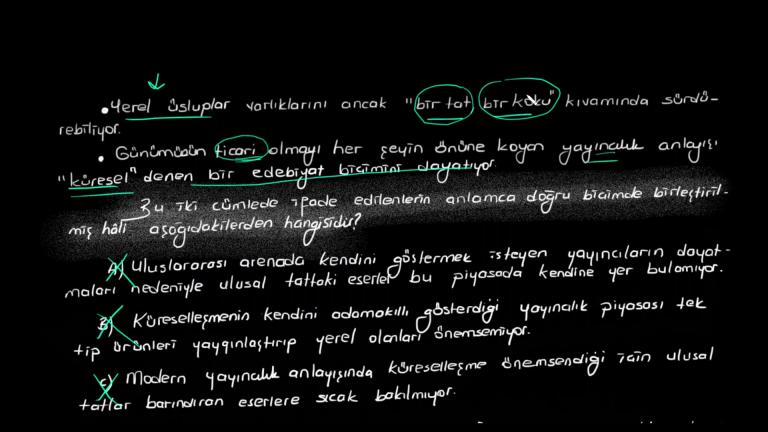 • Yerel üsluplar varlıklarını ancak "bir tat bir koku" kıvamında sürdü-
rebiliyor.
• Günümüzün ticari olmayı her şeyin önüne koyan yayıncılık anlayışı
"küresel" denen bir edebiyat biçimini dayatıyor.
Bu iki cümlede ifade edilenlerin anlamca doğru biçimde birleştiril-
miş hâli aşağıdakilerden hangisidir?
A) Uluslararası arenada kendini göstermek isteyen yayıncıların dayat-
maları nedeniyle ulusal tattaki eserler bu piyasada kendine yer bulamıyor.
B) Küreselleşmenin kendini adamakıllı gösterdiği yayıncılık piyasası tek
tip ürünleri yaygınlaştırıp yerel olanları önemsemiyor.
C) Modern yayıncılık anlayışında küreselleşme önemsendiği için ulusal
tatlar barındıran eserlere sıcak bakılmıyor.